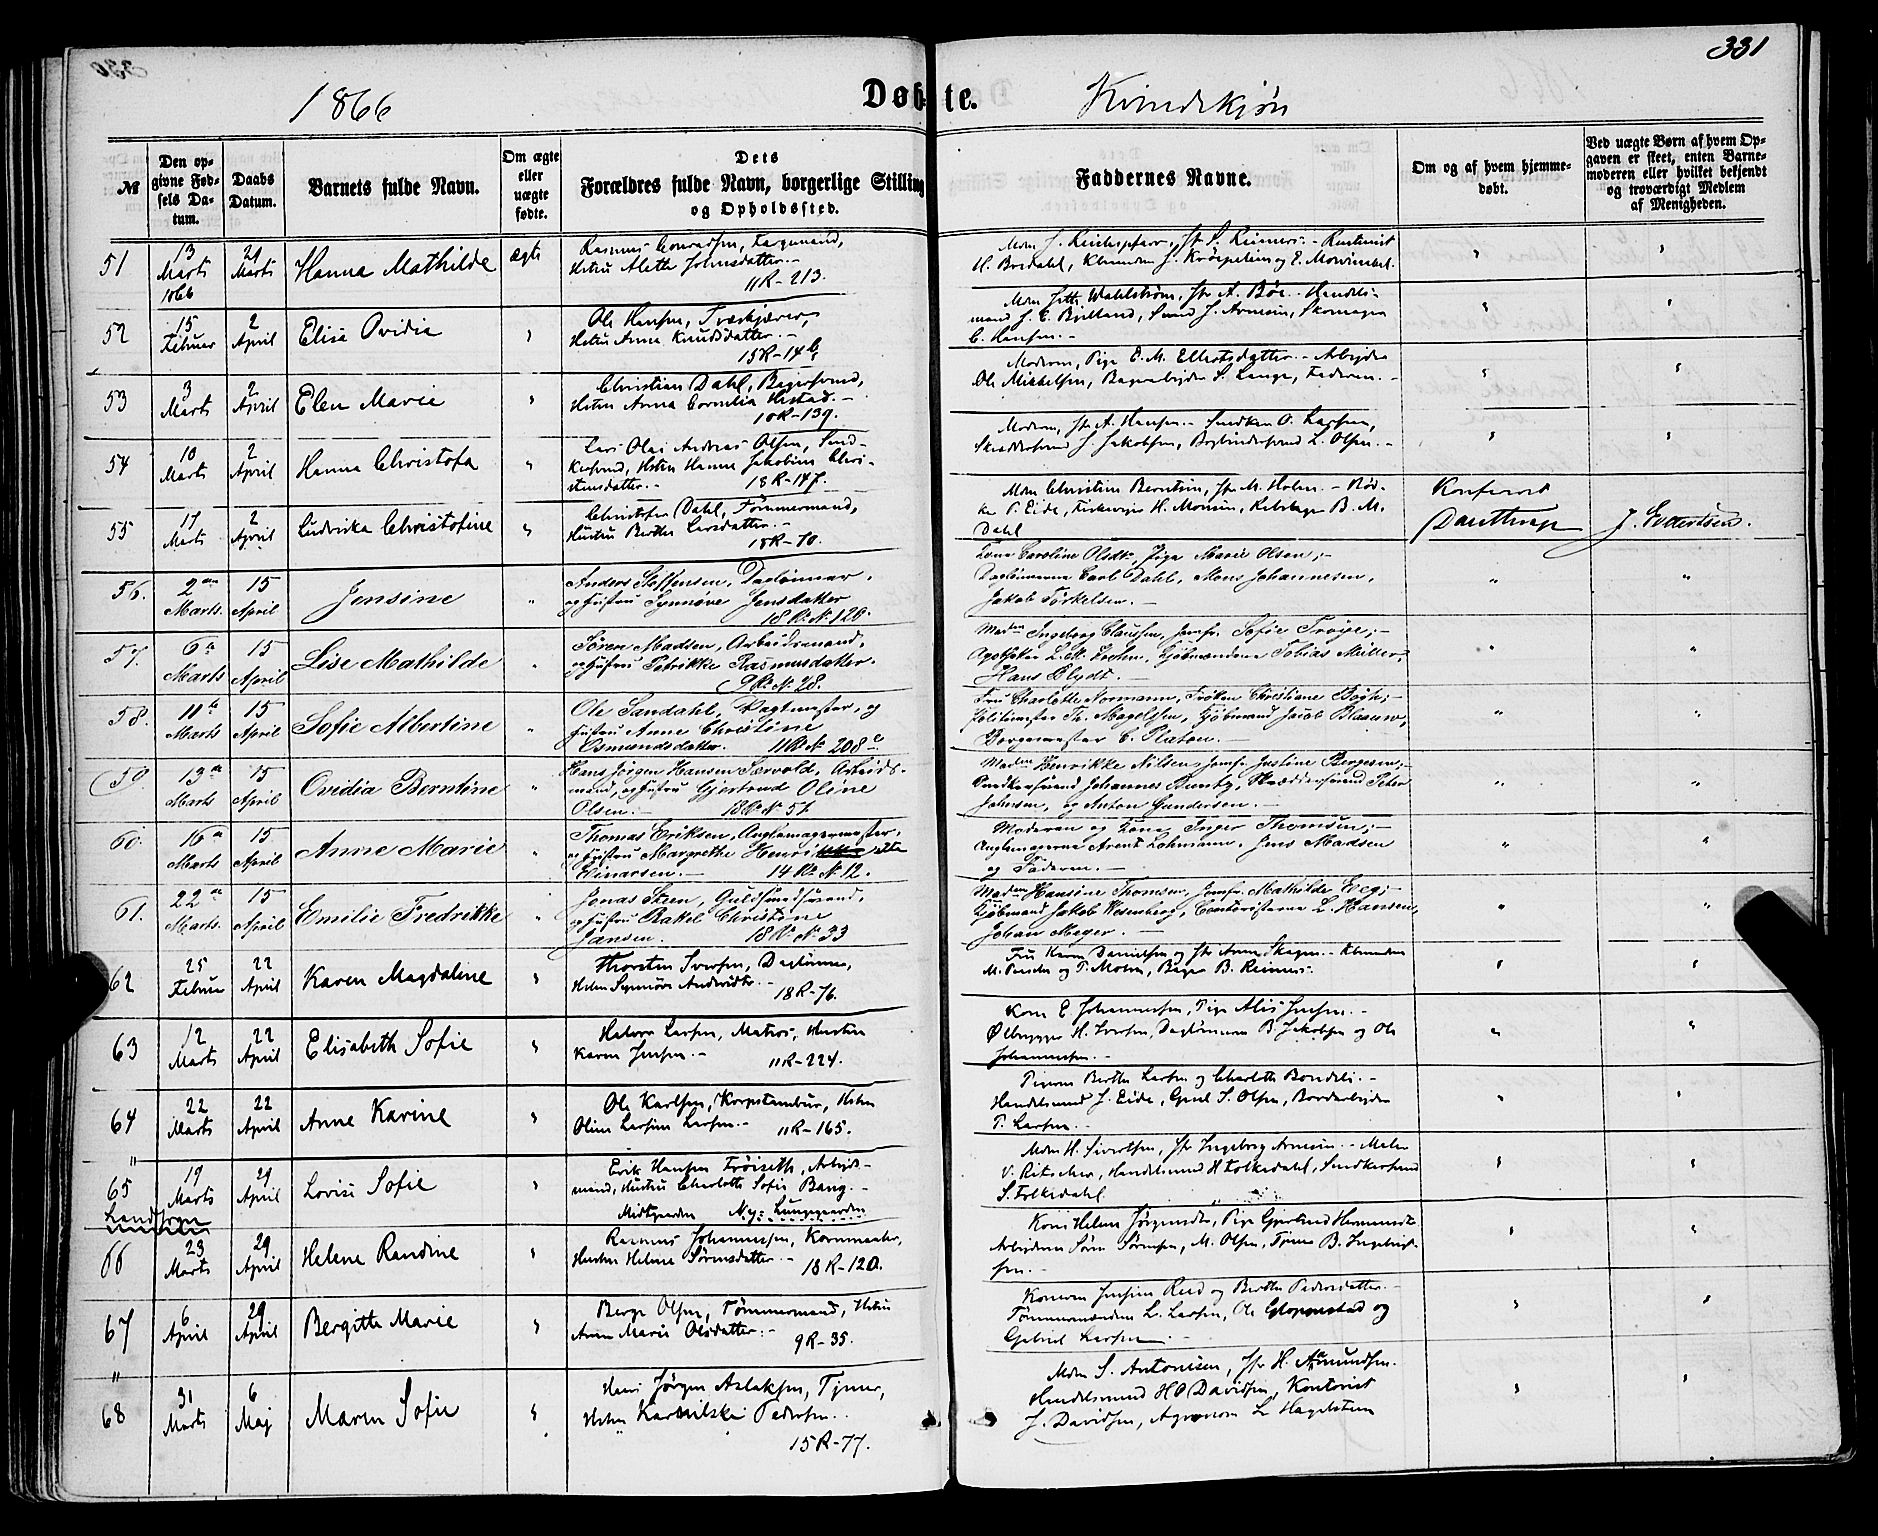 331
1866
Døbte.
Kvindekjøn
№
Den op-
givne Fød-
sels Da-
tum.
Daabs
Datum.
Barnets fulde Navn.
Om ægte
eller
uægte
fødte.
Dets
Forældres fulde Navn, borgerlige Stilling
og Opholdssted.
Faddernes Navne.
Om og af hvem hjemme-
døbt.
Ved uægte Børn af hvem Op-
gaven er skeet, enten Barne-
moderen eller hvilket bekjendt
og troværdigt Medlem
af Menigheden.
51
13
Marts
1866
21
Marts
Hanna Mathilde
ægte
Rasmus
Hustru Alette Johnsdatter.-
11R-213.
52
15
Februar
2
April
Elise Ovidia
"
Ole Hansen,
Hustru Anna Knudsdatter.-
15R-14b,
Mdm Wahlstrøm, Jfr A. Bøe.- Handels-
mand J. E. Bjelland, Svend J. Arnesen, Skomager
C. Hansen.-
53
3
Marts
2
April
Elen Marie
"
Christian Dahl, Bagersvend,
Hustru Anna Cornelia
10R-139.
Moderen, Pige E. M. Ellertsdatter.- Arbejder
Ole Mikkelsen, Bagerarbejder S. Lange, Faderen.-
54
10
Marts
2
April
Hanna Christofa
"
Lars Olai Andreas Olsen, Sned-
kersvend, Hustru Hanne Jakobine Chri-
stensdatter.-
18R-147.
Moderen, Jfr A. Hansen.- Snedker O. Larsen,
Skreddersvend J. Jakobsen, Bogbindersvend L. Olsen.-
55
17
Marts
2
April
Ludvika Christofine
"
Christofer Dahl, Tømmermand,
Hustru Berthe Larsdatter.-
18R-70.
Mdm Christine Berntsen, Jfr M. Holm.- Bød-
ker P. Eide, H. Monsen, B. M.
Dahl
J. Evertsen.
56.
2den
Marts.
15
April
Jensine
"
Anders Steffensen, Daglønner,
og Hustru Synnøve Jensdatter
18 R. N. 120.
Kone Caroline Olsdtr, Pige Marie Olsen;-
Daglønnerne Carl Dahl, Mons Johannesen,
Jakob Torkelsen.-
57.
6te
Marts
15
April
Lise Mathilde
"
Søren Madsen, Arbeidsmand,
og Hustru Petrikke Rasmusdatter.
9 R. N. 28.
Madm Ingeborg Claussen, Jomfr. Sofie Troye;-
Apotheker Kjøbmændene Tobias Müller,
Hans Blydt.-
58.
11te
Marts
15
April
Sofie Albertine
"
Ole Sandahl, Vagtmester, og
Hustru Anne Christine
Osmundsdatter.
11 R. N. 208c
Fru Charlotte Normann, Frøken Christiane Bøgh;-
Politimester Th. Magelssen, Kjøbmand Jacob Blaauw,
Borgermester C. Platou.-
59.
13de
Marts
15
April
Ovidia Berntine
"
Hans Jørgen Hansen Sørvold, Arbeids-
mand, og Hustru Gjertrud Oline
Olsen.-
Madm Henrikke Nilsen, Jomfr. Justine Bergesen;-
Snedkersvend Johannes Skræddersvend Peter
Johnsen, og Anton Gundersen.-
60.
16de
Marts
15
April
Anne Marie
"
Thomas Eriksen, Anglemagermester,
og Hustru Margrethe
Einarsen.-
14 R. N. 12.
Moderen og Kone Inger Thomsen;-
Anglemagerne Arent Lohmann, Jens Madsen
og Faderen.-
61.
22de
Marts.
15
April
Emilie Fredrikke
"
Jonas Steen, Guldsmedsvend,
og Hustru Rakel Christine
Jansen.
18 R. N. 33
Madm Hansine Thomsen, Jomfr. Mathilde Eeg;-
Kjøbmand Jakob Wesenberg, Contoristerne L. Hansen,
Johan Meyer.-
62
25
Februar
22
April
Karen Magdalene
"
Thorsten Iversen, Daglønner,
18R-76.
Fru Karen Danielsen og Jfr Anne Skagen.- Kbmændene
M. og T. Mohn, Bager B. Reimers.-
63
12
Marts
22
April
Elisabeth Sofie
"
Halvor Larsen, Matros, Hustru
Karen Jensen.-
11R-224.
Kone E. Johannesen, Pige Alis Jensen.-
Ølbrygger H. Iversen, Daglønnerne B. Jakobsen og Ole
Johannessen.-
64
22
Marts
22
April
Anne Karine
"
Ole Karlsen, Korpstambur, Hustru
Oline Larsine Larsen.-
11R-165.
Pigerne Berthe Larsen og Charlotte Bondeli.-
Handelsmand J. Eide, S. Olsen, Bordarbejder
T. Larsen.-
"
65
Landsogn
19
Marts
29
April
Lovise Sofie
"
Erik Hansen Frøiseth, Arbejds-
mand, Hustru Charlotte Sofie Bang.-
Midtgaarden Ny: Lungegaarden
Mdm H. Sivertsen, Jfr Ingeborg Arnesen.- Maler
V. Ritscher, Handelsmand H Folkedahl, Snedkersvend
S. Folkedahl
66
23
Marts
29
April
Helene Randine
"
Rasmus Johannessen, Kornmaaler,
Hustru Helene Sørensdatter.-
18R-120.
Kone Helene Jørgensdtr, Pige Gjertrud
Arbejderne Søren Sørensen, M. Olsen, Tjener B. Ingebrigt-
sen.-
67
6
April
29
April
Bergitte Marie
"
Berge Olsen, Tømmermand, Hustru
Anne Marie Olsdatter.-
9R-35.
Konerne Jensine Reed og Berthe Pedersdatter.-
Tømmermændene L. Larsen, Ole Gloppenstad og
Gabriel Larsen.-
"
68
31
Marts
6
Maj
Maren Sofie
"
Hans Jørgen Aslaksen, Tjener,
Pedersen..
15R-77.
Mdm S. Antonisen, Jfr H. Aamundsen.
Handelsmand HO Davidsen, Kontorist
J. Davidsen, Agronom L. Hagelsteen